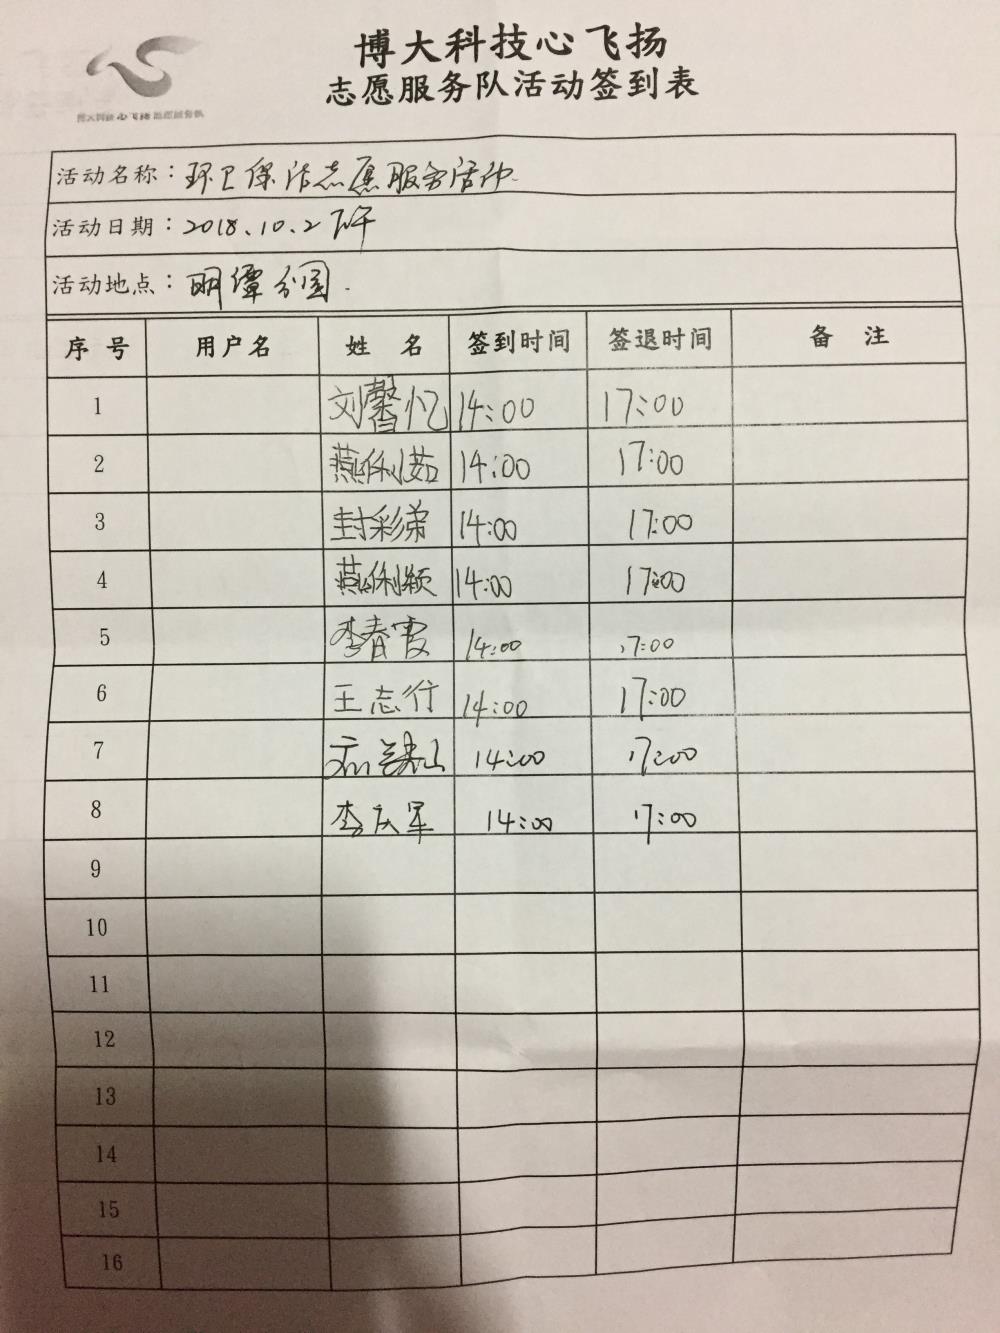 博大科技心飞扬
志愿服务队活动签到表
博大科技心飞扬志愿服务队
活动名称：环卫保洁志愿服务活动
活动日期：2018.10.2下午
活动地点：明潭公园.
序号 用户名 姓名 签到时间 签退时间 备注
1 刘馨忆 14:00 17:00
2 燕俐茹 14:00 17:00
3 封彩弟 14:00 17:00
4 燕俐颖 14:00 17:00
5 李春霞 14:00 17:00
6 王志行 14:00 17:00
7 14:00 17:00
8 李庆军 14:00 17:00
9
10
11
12
13
14
15
16